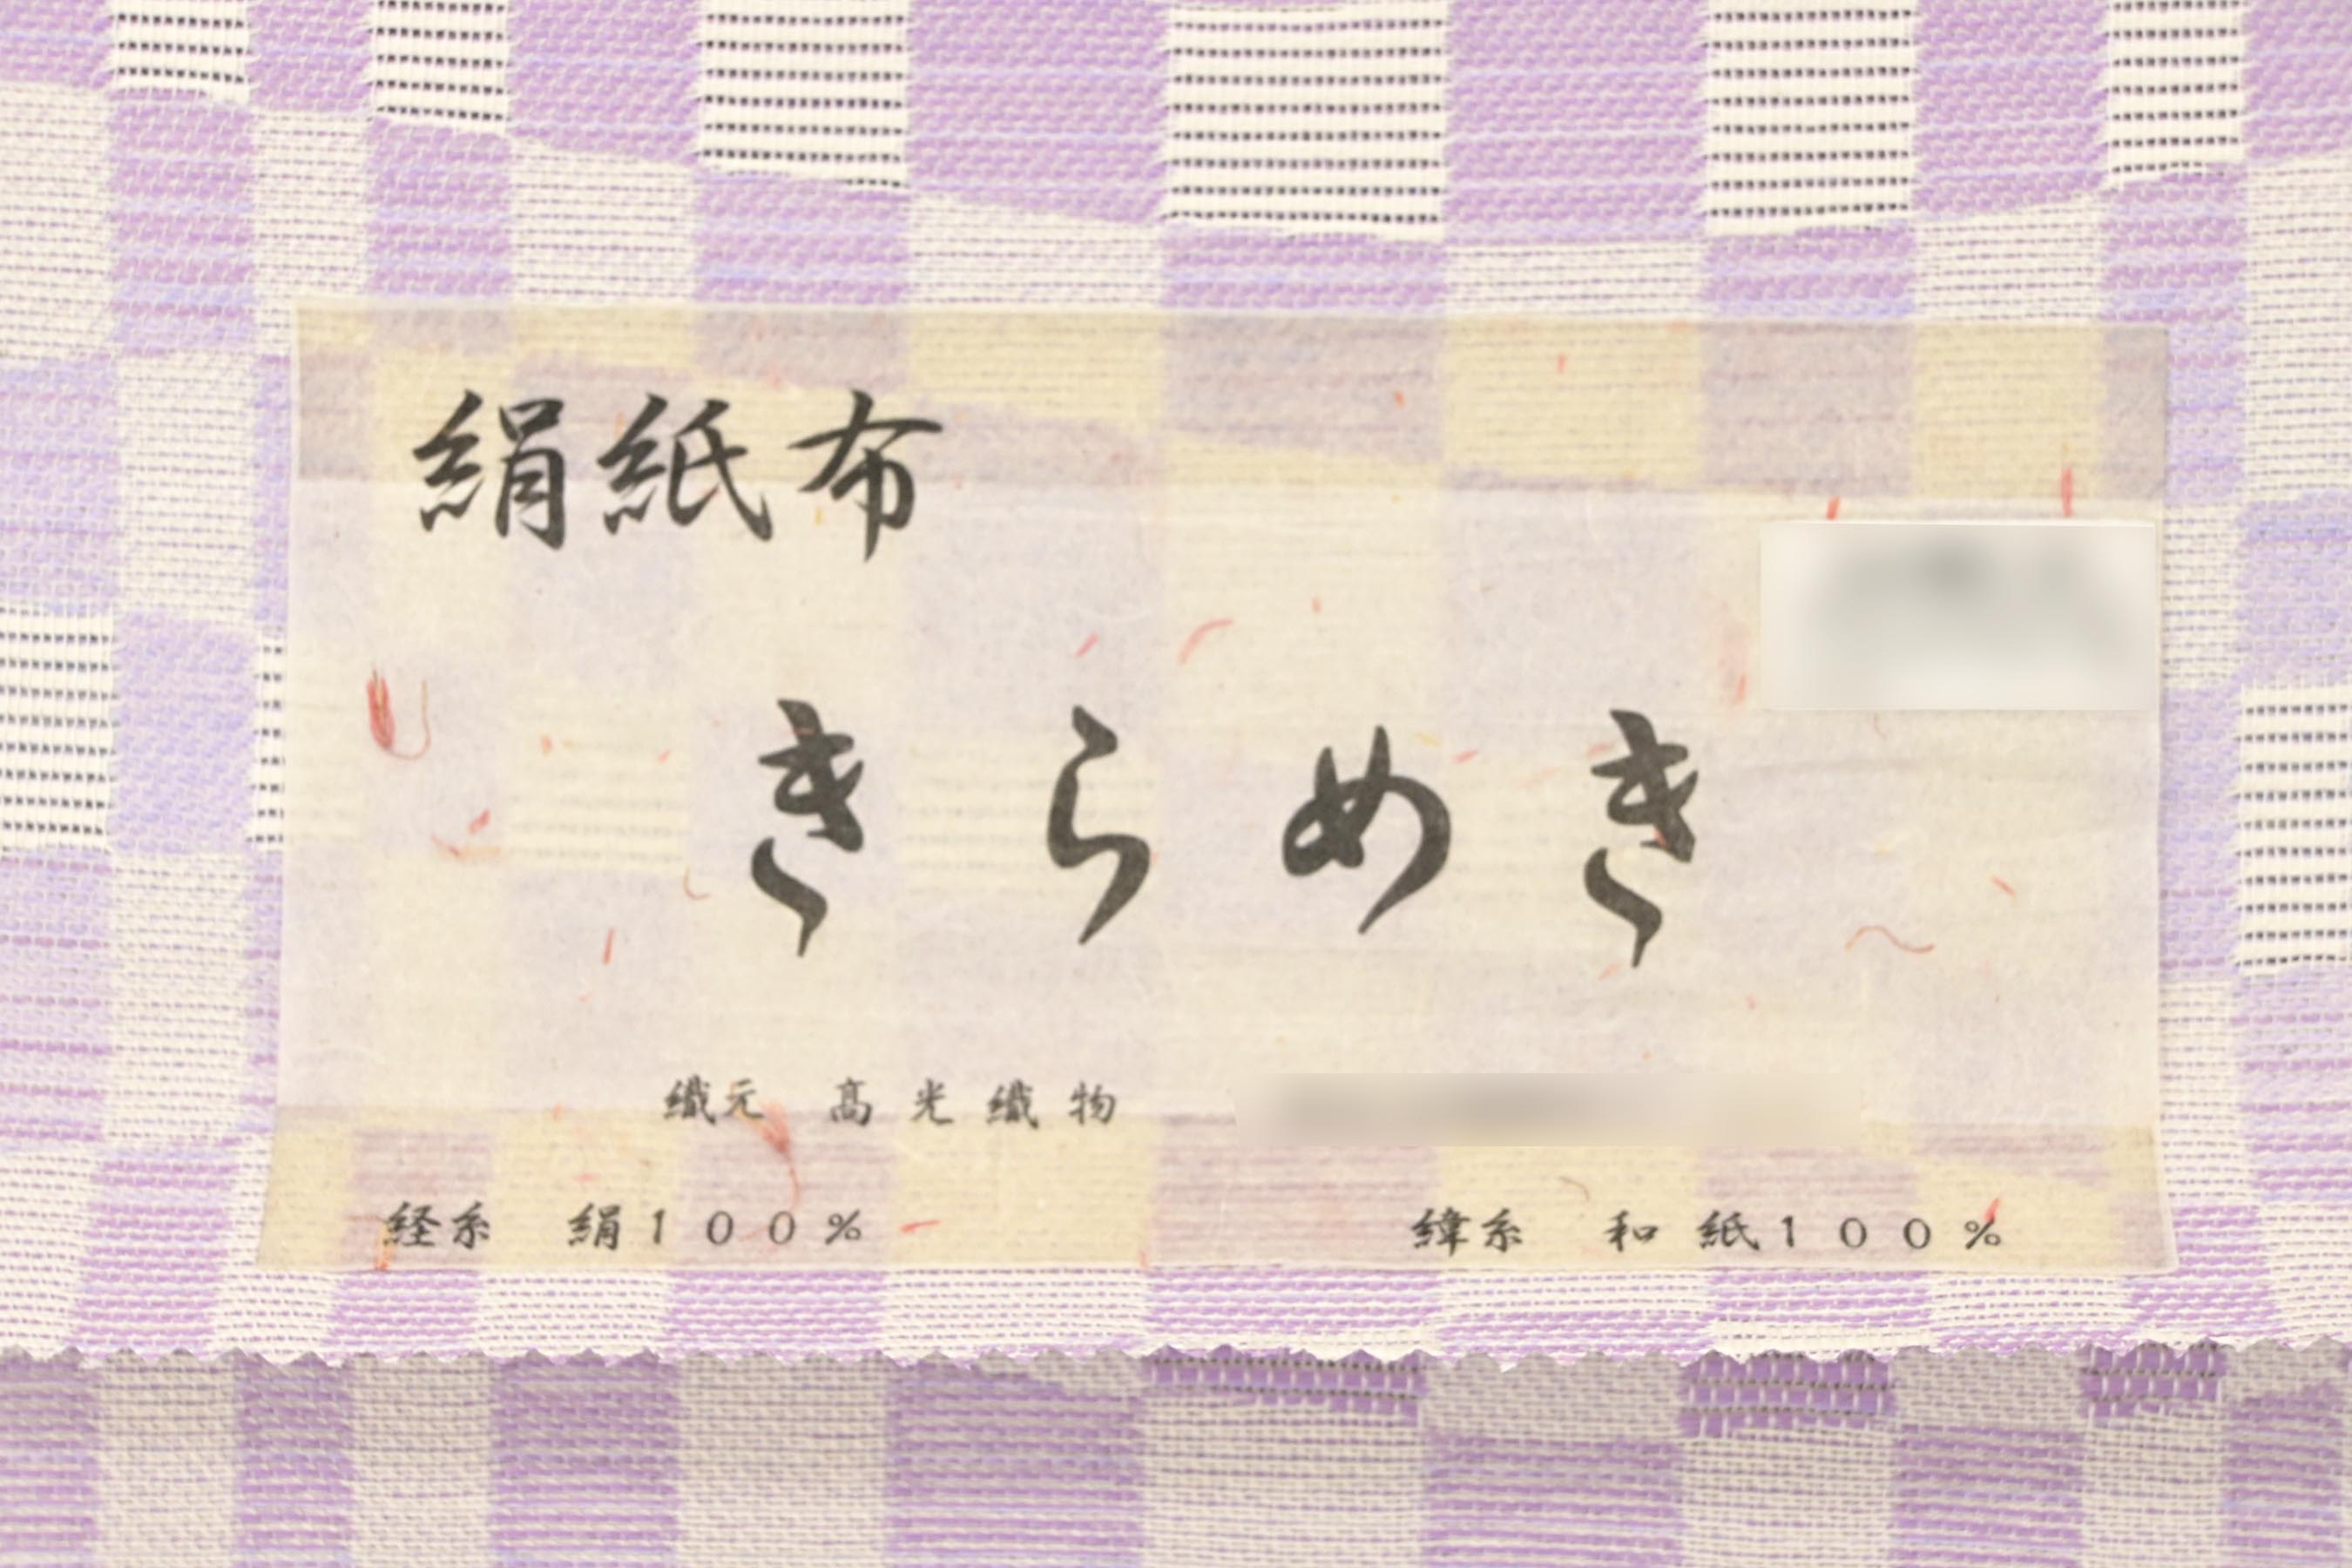 絹紙布
きらめき
織元 髙光織物
経糸 絹１００％
緯糸 和紙１００％